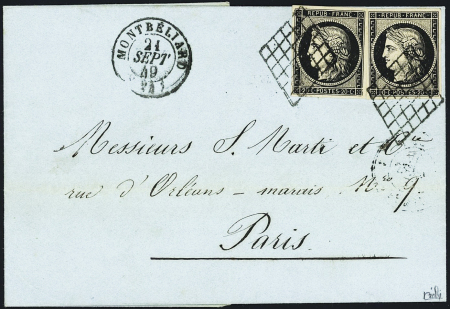 MONTBÉLIARD
21
SEPT
49
REPUB FRANC
REPUB FRANC
20 C POSTES 20 C
20 C POSTES 20 C
Messieurs S. Marti et Cie
rue d'Orléans – marais No 9
Paris